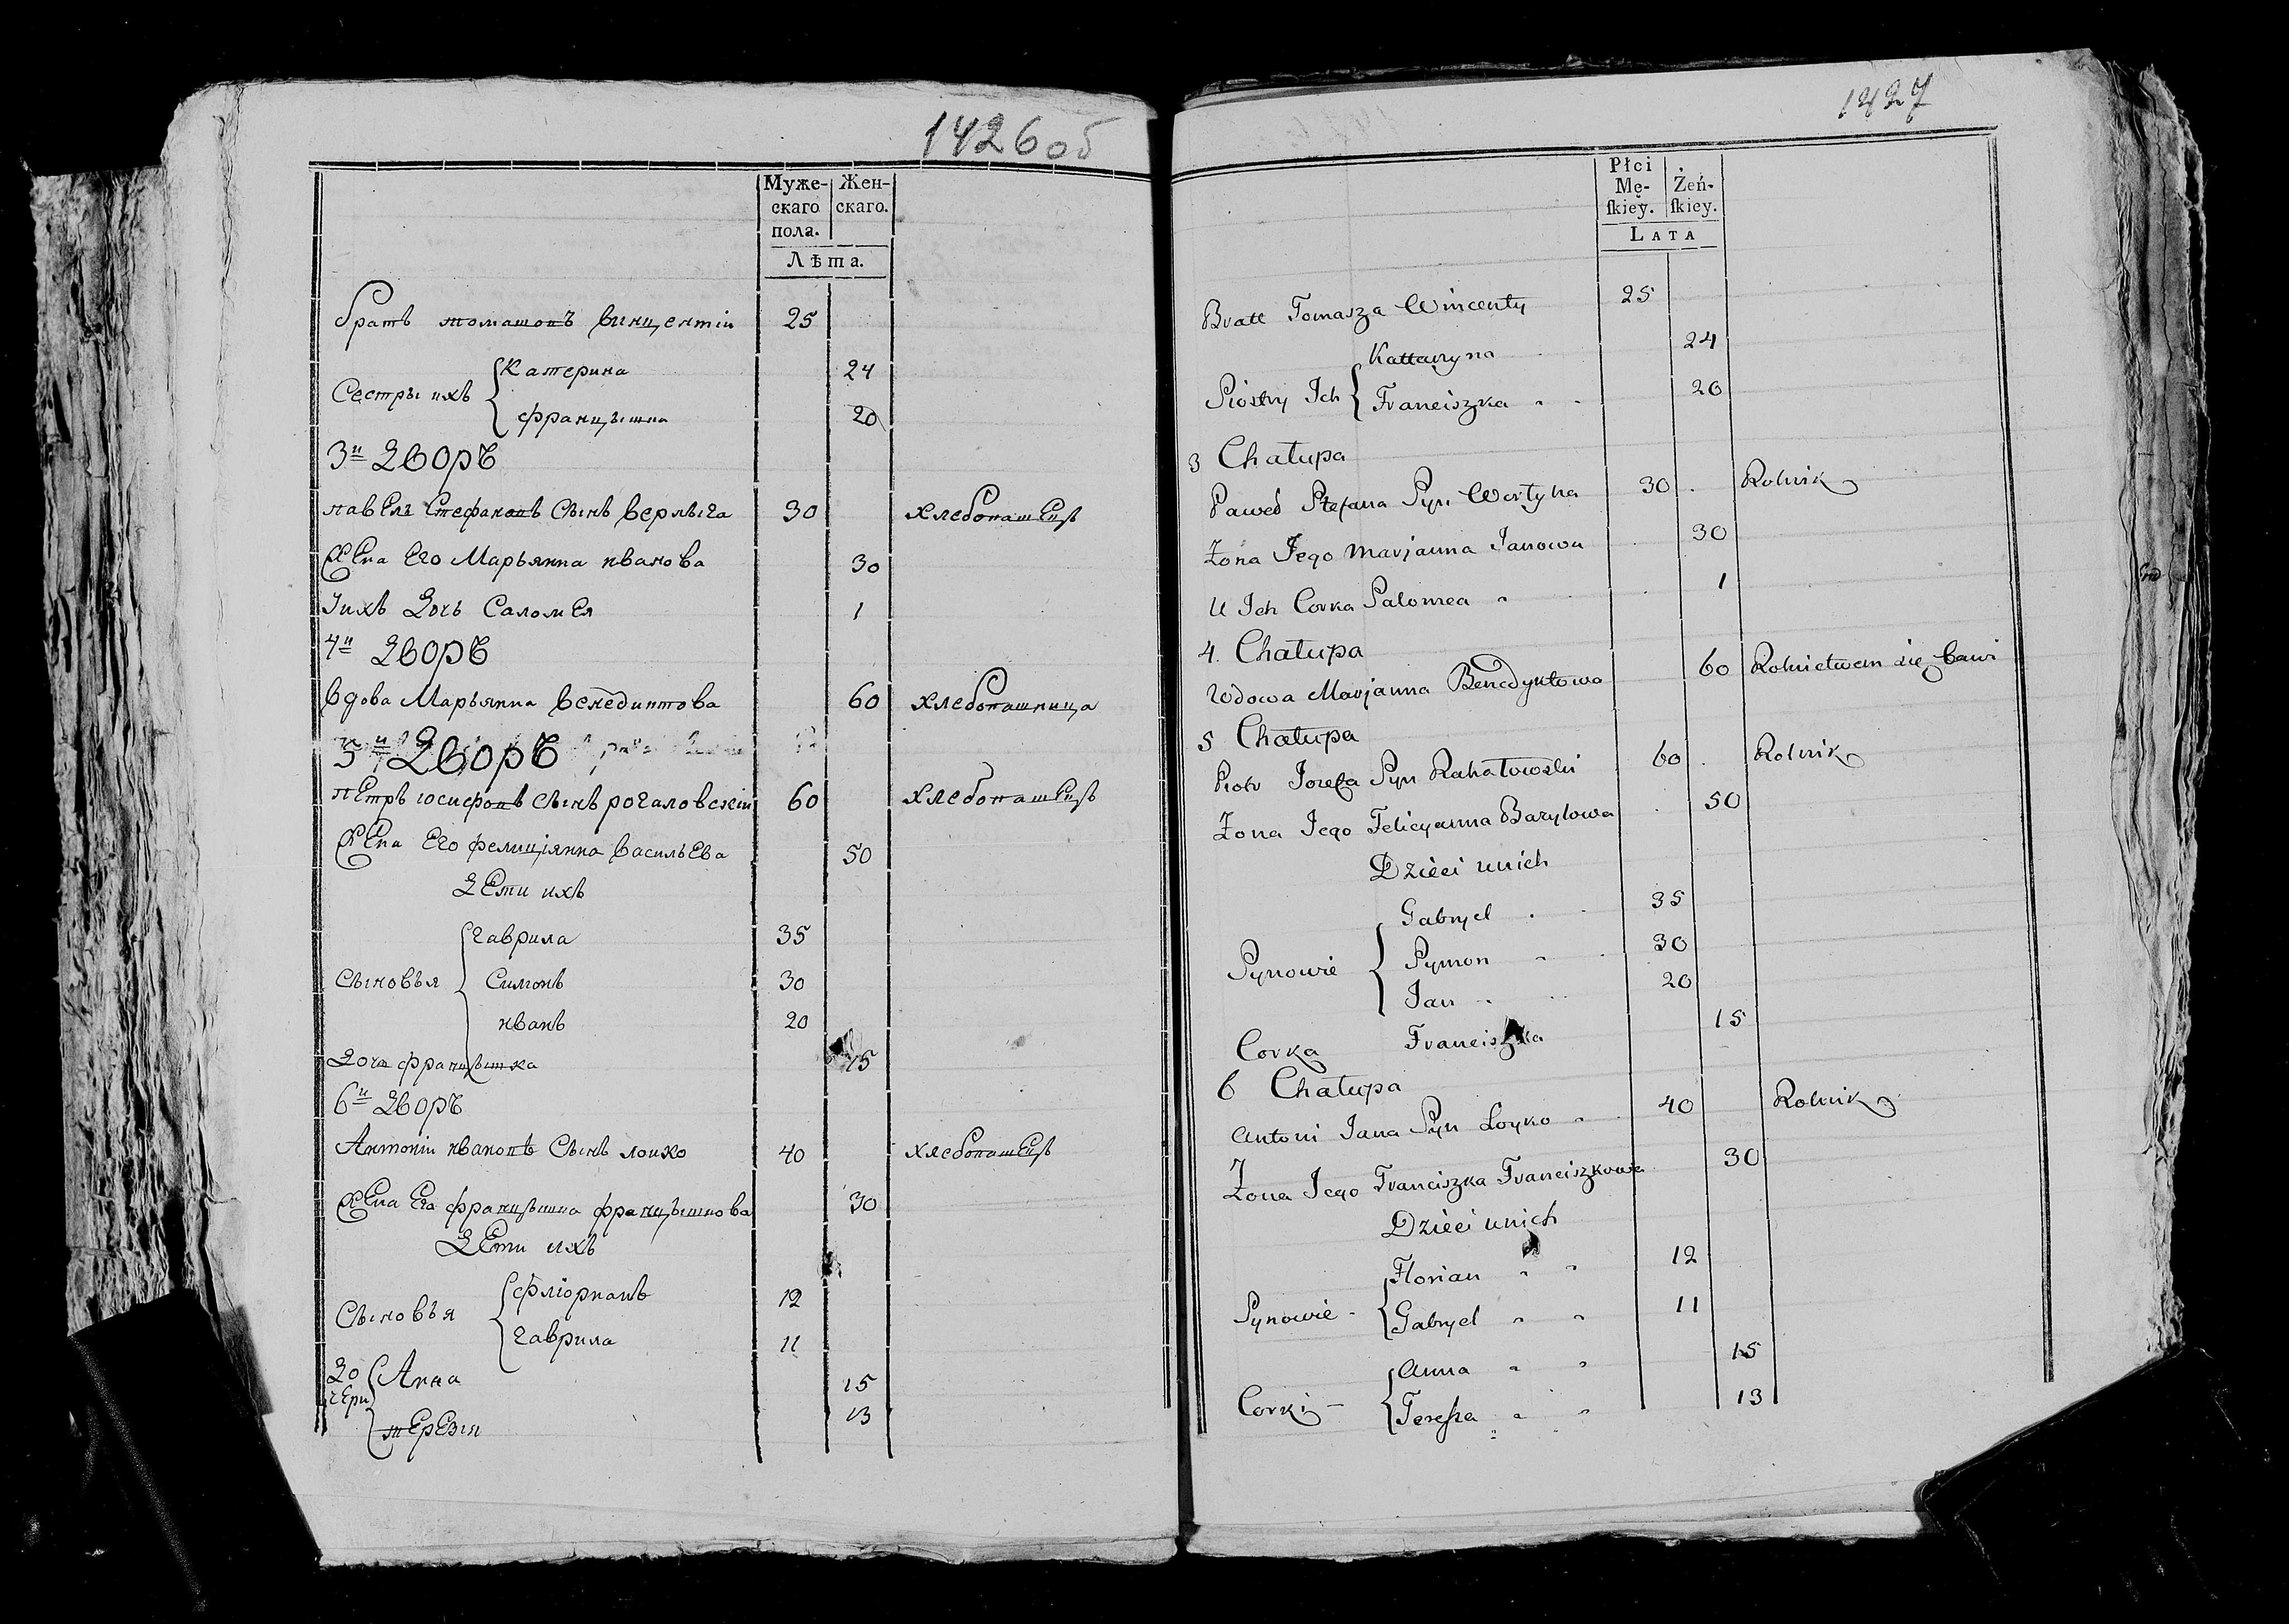 1426об
Муже-
скаго
пола.
Жен-
скаго.
Лѣта.
братъ томашовъ винцентіи 25
Сестры ихъ
Катерина 24
францышка 20
3и Дворъ
павелъ Стефановъ Сынъ верлыга 30 хлебопашецъ
Жена Его Марьянна иванова 30
Iихъ Дочь СаломЕя 1
4и Дворъ
вдова Марьянна венедиктова 60 хлебопашница
5и Дворъ
пЕтръ iосифовъ Сынъ рогаловскiи 60 хлебопашецъ
Жена Его фелицiянна васильЕва 50
ДЕти ихъ
Сыновья
гаврила 35
Симонъ 30
иванъ 20
Дочь францышка 15
6и Дворъ
Антонiи ивановъ Сынъ лоико 40 хлебопашецъ
Жена Его францышка францышкова 30
ДЕти ихъ
Сыновья
флiорианъ 12
гаврила 11
До
чЕри
Анна 15
тЕрЕзiя 13
1427
Płci
Mę-
ſkiey.
Żeń-
ſkiey.
LATA
Bratt Tomasza Wincenty 25
Siostry Ich
Kattarzyna 24
Franciszka 20
3 Chałupa
Paweł Stefana Syn Wertyha 30 Rolnik
Żona Jego Marjanna Janowa 30
U Ich Corka Salomea 1
4. Chałupa
Wdowa Marjanna Benedyktowa 60 Rolnictwem się bawi
5 Chałupa
Piotr Jozefa Syn Rahałowski 60 Rolnik
Żona Jego Felicyanna Bazylowa 50
Dzieci unich
Synowie
Gabryel 35
Symon 30
Jan 20
Corka Franciszka 15
6 Chałupa
Antoni Jana Syn Łoyko 40 Rolnik
Żona Jego Franciszka Franciszkowa 30
Dzieci unich
Synowie -
Florian 12
Gabryel 11
Corki -
Anna 15
Tereſsa 13